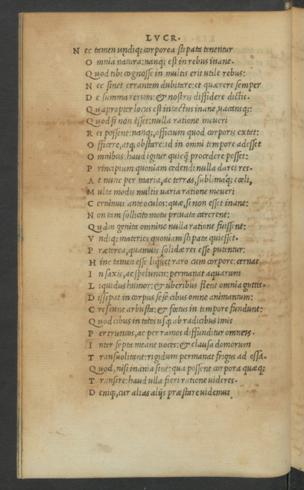 LVCR.
N ec tamen undiq; corporea stipata tenentur
O mnia natura: nanq; est in rebus inane.
Q uod tibi cognosse in multis erit utile rebus:
N ec sinet errantem dubitare: et quærere semper
D e summa rerum: & nostris diffidere dictis.
Q uapropter locus est intactus inane, uacansq;
Q uod si non esset: nulla ratione moueri
R es possent: nanq; officium quod corporis extet:
O fficere, atq; obstare: id in omni tempore adesset
O mnibus. haud igitur quicq̃ procedere posset:
P rincipium quoniam cædendi nulla daret res.
A t nunc per maria, ac terras, sublimaq; cœli,
M ulta modis multis uaria ratione moueri
C ernimus ante oculos: quæ, si non esset inane:
N on tam sollicito motu priuata carerent:
Q uàm genita omnino nulla ratione fuissent:
V ndiq; materies quoniam stipata quiesset.
P ræterea, quamuis solidæ res esse putentur:
H inc tamen esse licet raro cum corpore: cernas
I n saxis, ac speluncis: permanat aquarum
L iquidus humor: & uberibus flent omnia guttis.
D issipat in corpus sese cibus omne animantum:
C rescunt arbusta: & fœtus in tempore fundunt:
Q uod cibus in totas usq; ab radicibus imis
P er truncos, ac per ramos diffunditur omneis.
I nter septa meant uoces: & clausa domorum
T ransuolitant: rigidum permanat frigus ad ossa.
Q uod, nisi inania sint: qua possent corpora quæq;
T ransire: haud ulla fieri ratione uideres.
D eniq; cur alias alijs præstare uidemus